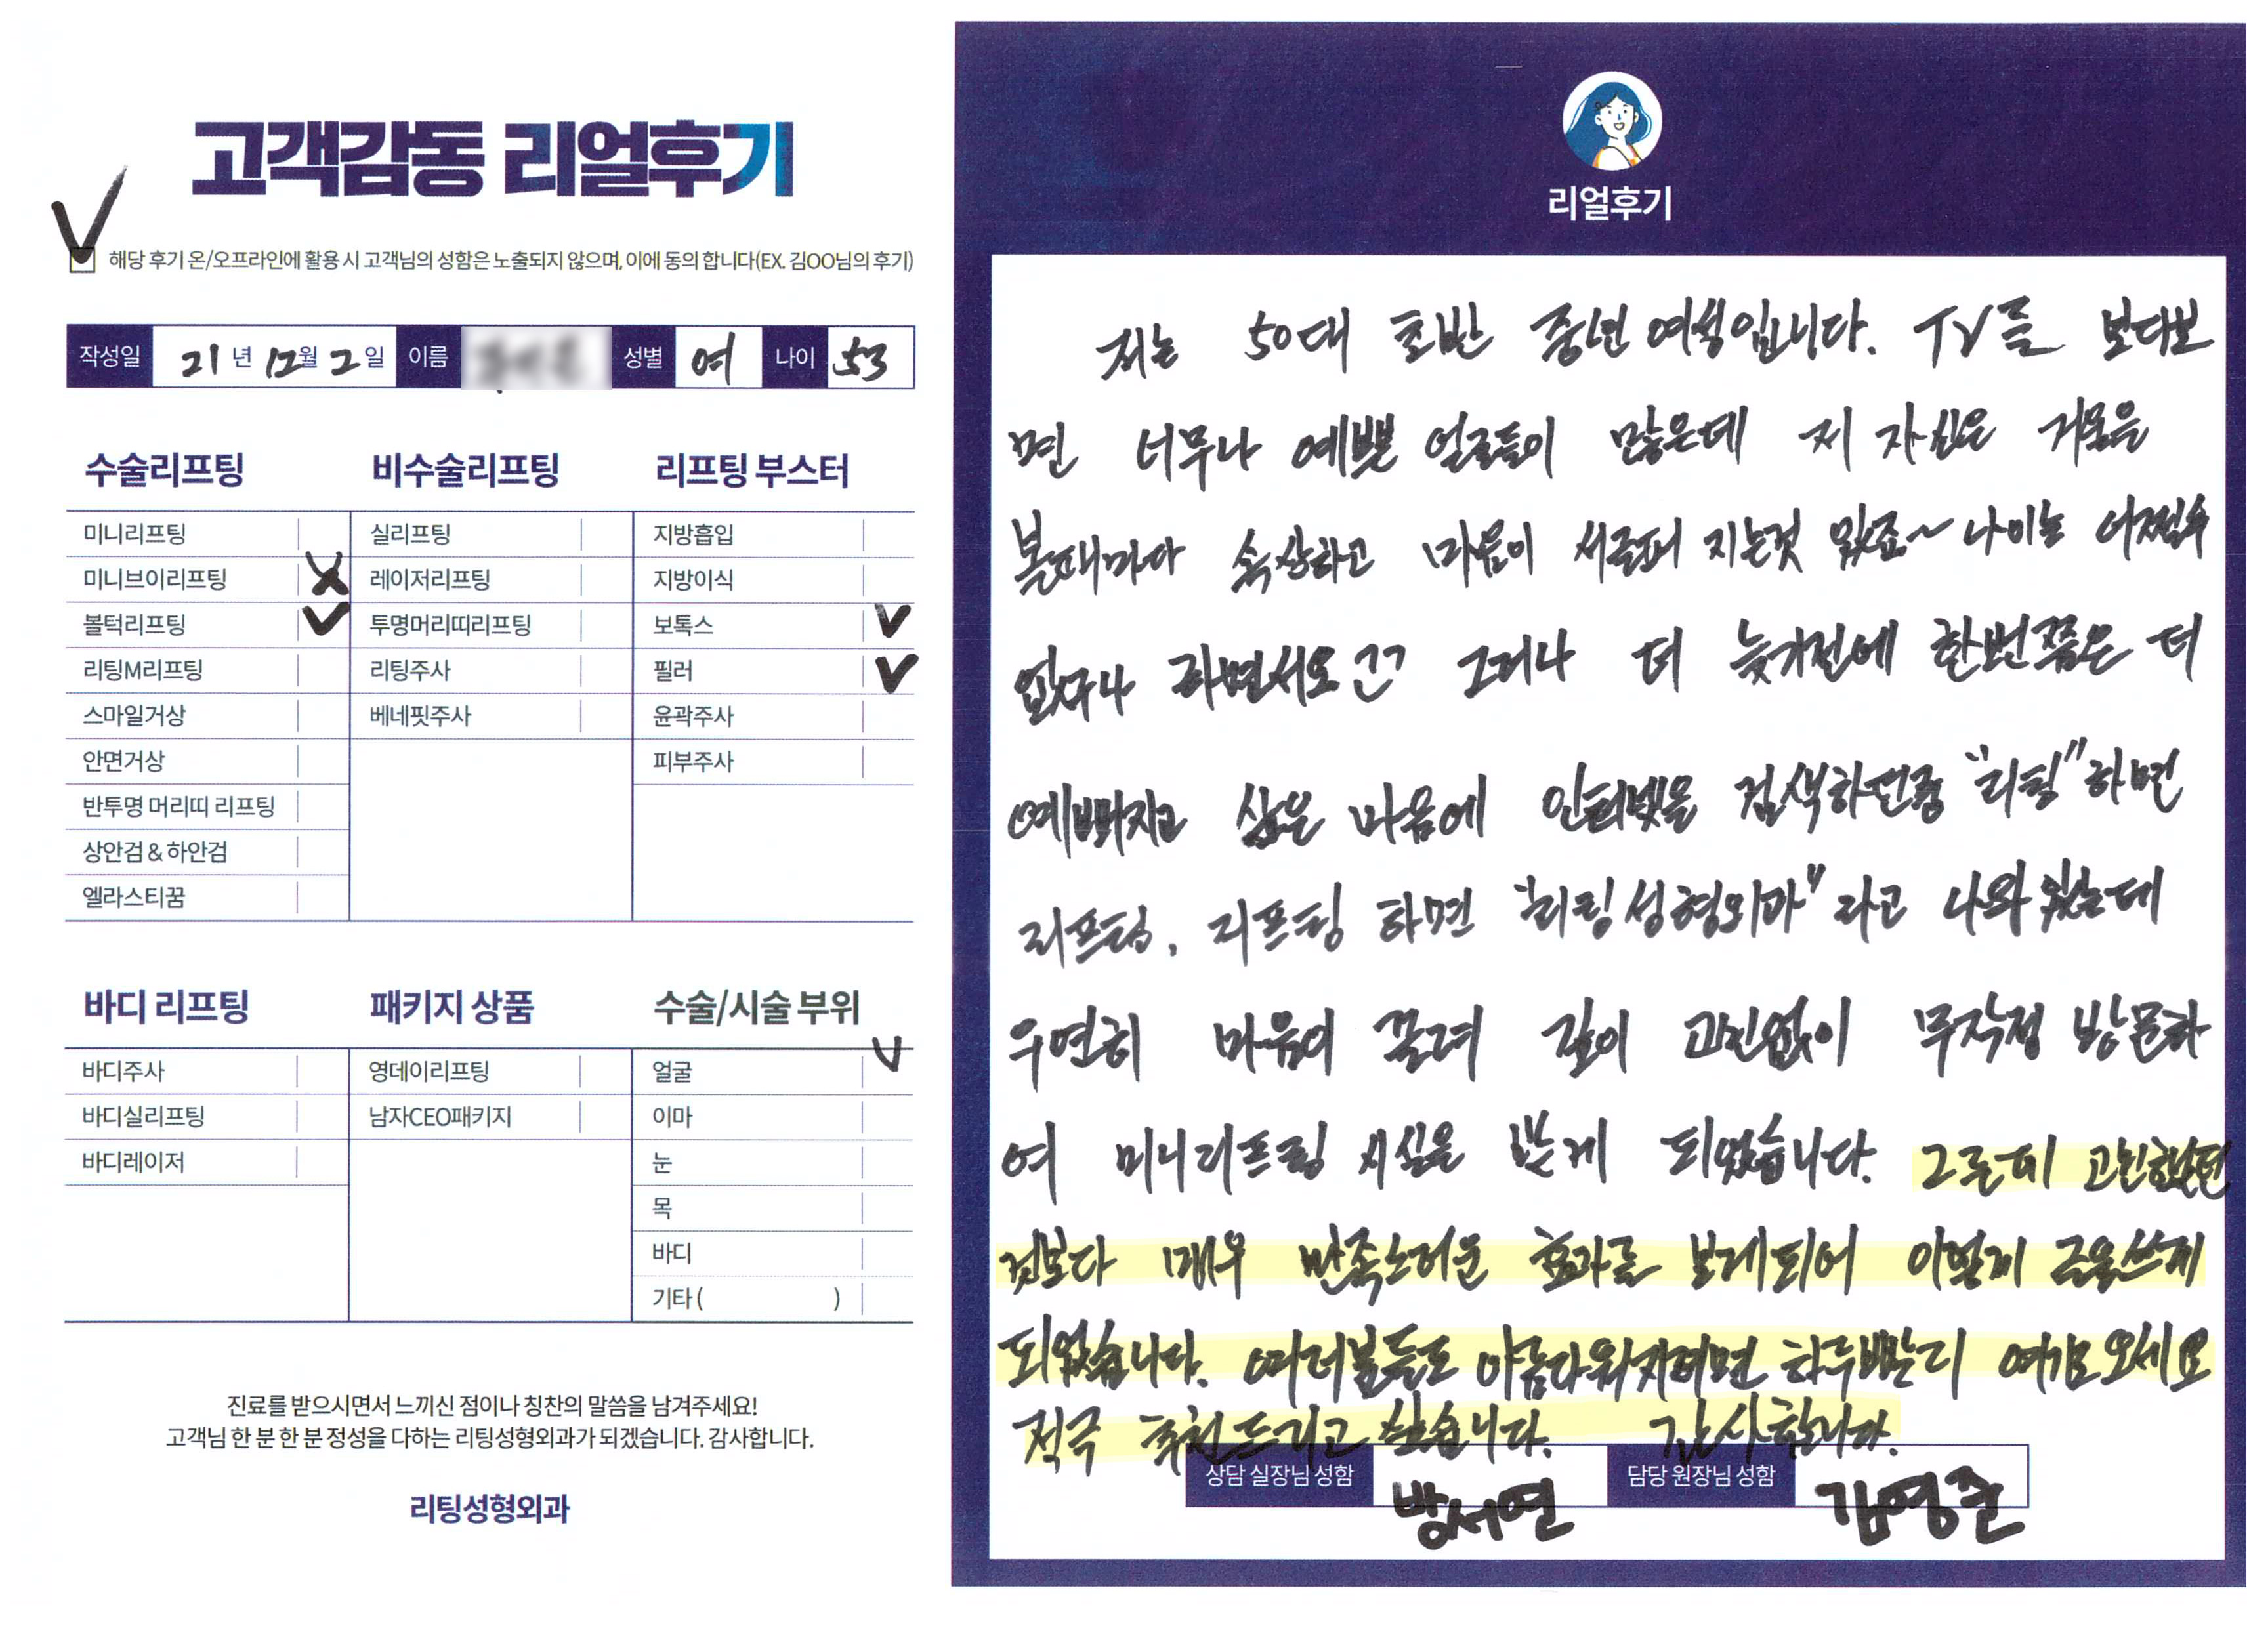 고객감동 리얼후기
해당 후기 온/오프라인에 활용 시 고객님의 성함은 노출되지 않으며, 이에 동의 합니다(EX. 김OO님의 후기)
작성일 21 년 12 월 2 일 이름 성별 여 나이 53
수술리프팅
미니리프팅
미니브이리프팅
볼턱리프팅
리팅M리프팅
스마일거상
안면거상
반투명 머리띠 리프팅
상안검 & 하안검
엘라스티꿈
비수술리프팅
실리프팅
레이저리프팅
투명머리띠리프팅
리팅주사
베네핏주사
리프팅 부스터
지방흡입
지방이식
보톡스
필러
윤곽주사
피부주사
바디 리프팅
바디주사
바디실리프팅
바디레이저
패키지 상품
영데이리프팅
남자CEO패키지
수술/시술 부위
얼굴
이마
눈
목
바디
기타 ( )
진료를 받으시면서 느끼신 점이나 칭찬의 말씀을 남겨주세요!
고객님 한 분 한 분 정성을 다하는 리팅성형외과가 되겠습니다. 감사합니다.
리팅성형외과
리얼후기
저는 50대 초반 중년 여성입니다. TV를 보다보
면 너무나 예쁜 얼굴들이 많은데 저 자신은 거울을
볼때마다 속상하고 마음이 서글퍼 지는것 있죠~ 나이는 어쩔수
없구나 하면서요 그러나 더 늦기전에 한번쯤은 더
예뻐지고 싶은 마음에 인터넷을 검색하던중 "리팅" 하면
리프팅, 리프팅 하면 "리팅성형외과" 라고 나와 있는데
우연히 마음이 끌려 깊이 고민없이 무작정 방문하
여 미니리프팅 시실을 받게 되었습니다. 그런데 고민했던
것보다 매우 만족스러운 효과를 보게되어 이렇게 글을쓰게
되었습니다. 여러분들도 아름다워지려면 하루빨리 여길 오세요
적극 추천드리고 싶습니다. 감사합니다.
상담 실장님 성함 방서연 담당 원장님 성함 김영준